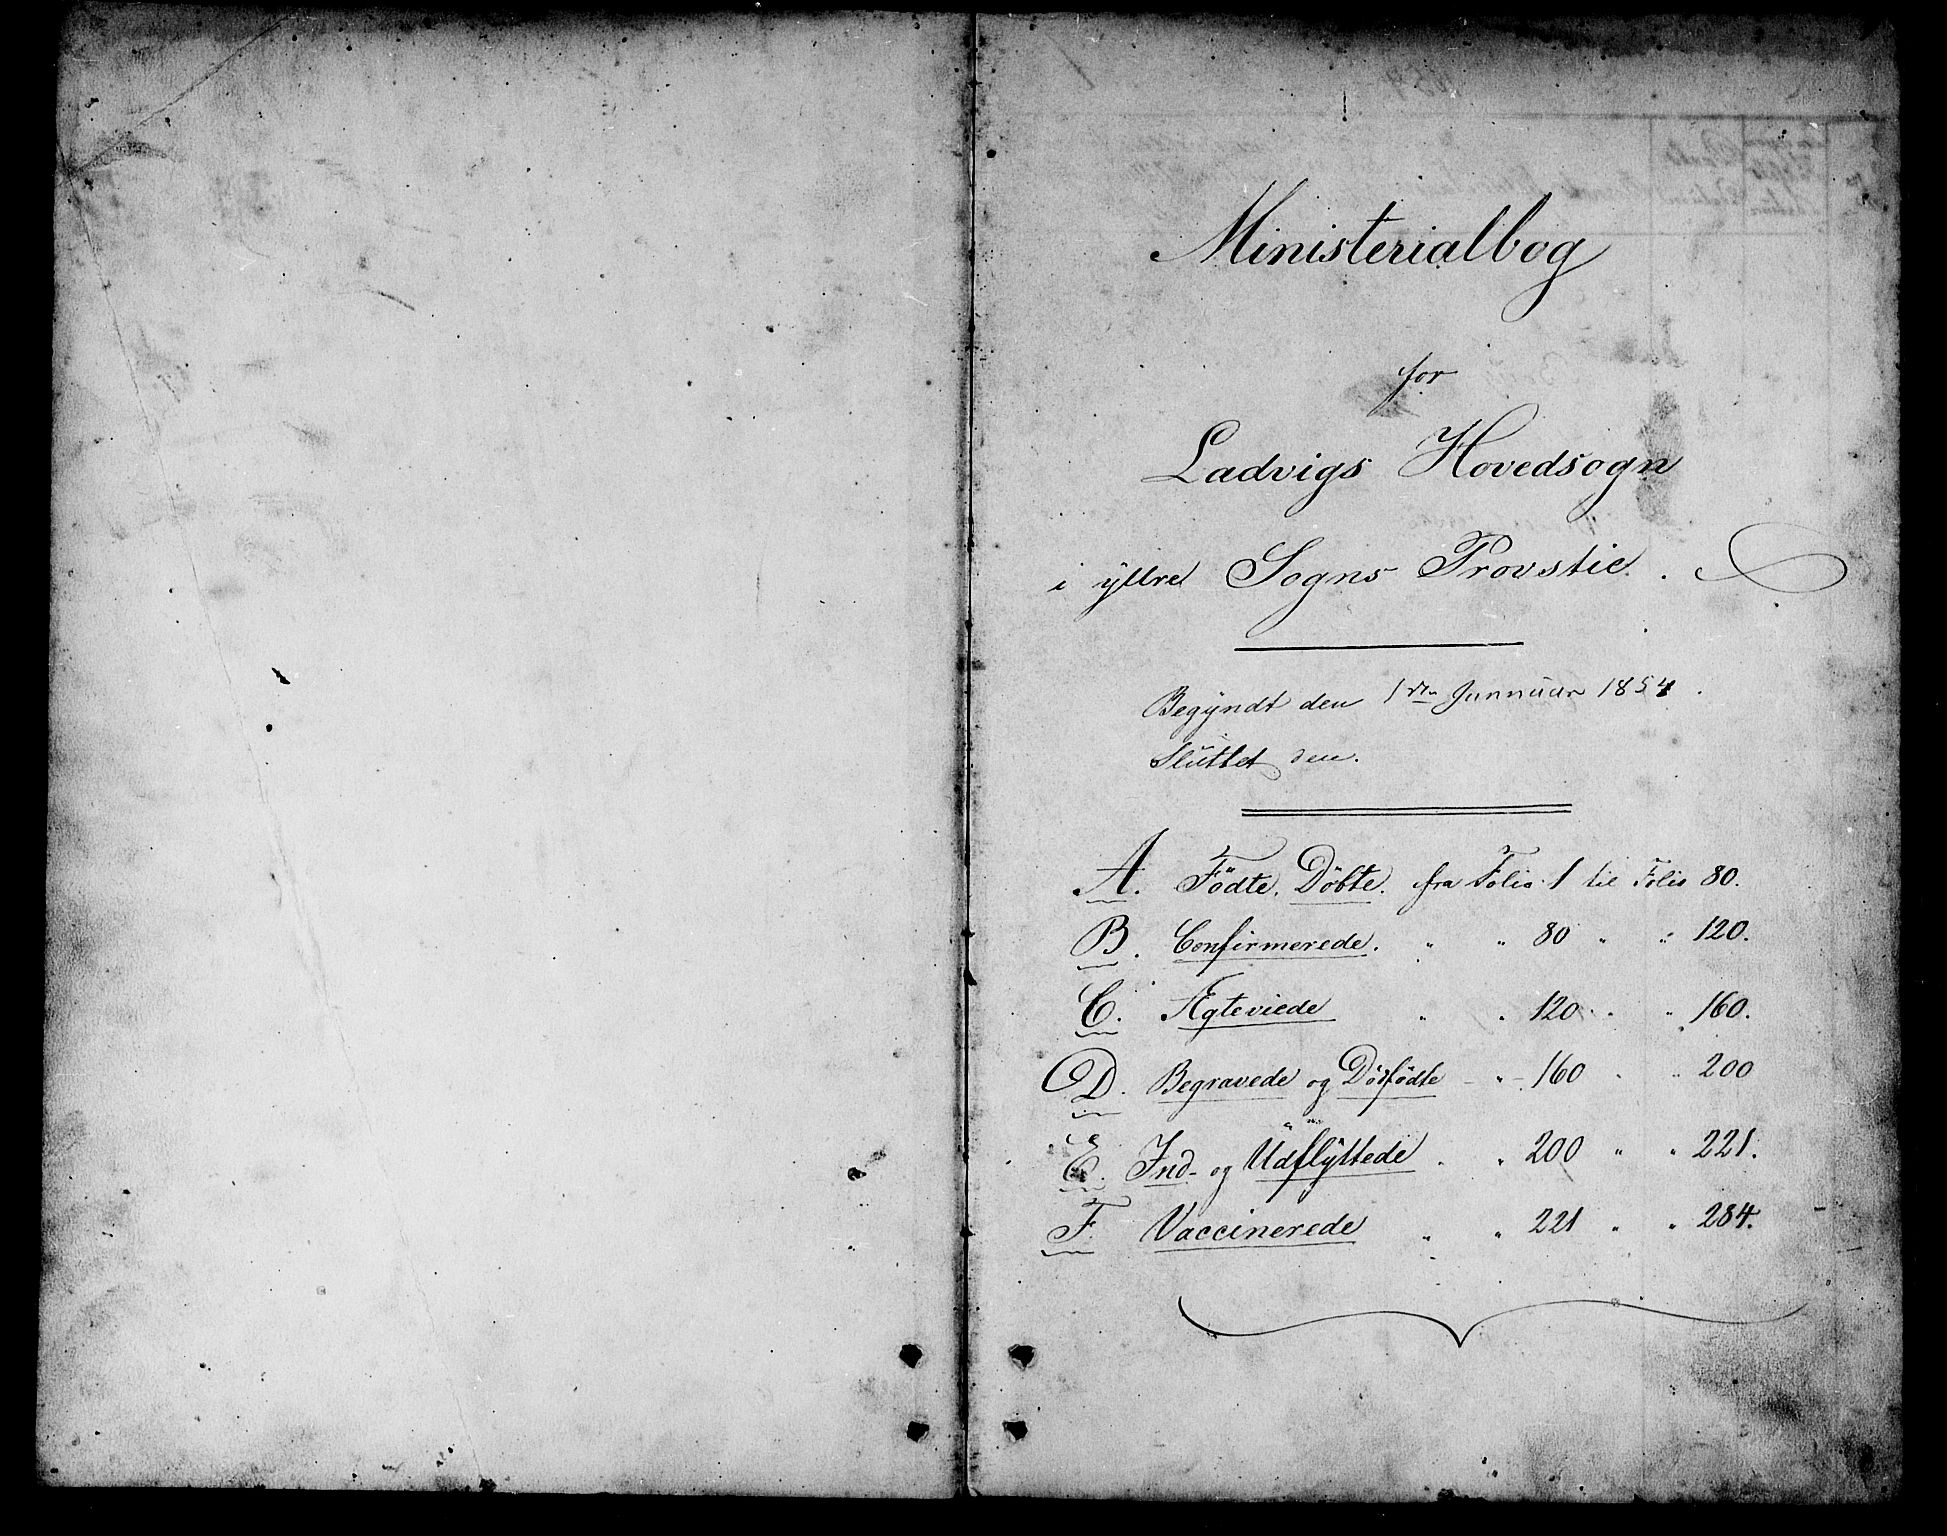 Ministerialbog
for
Ladvigs Hovedsogn
i yttre Sogns Provstie.
Begyndt den 1ste Januar 1854.
Sluttet den.
A. Födte, Döbte. fra Folio 1 til Folio 80.
B. Confirmerede. " " 80 " " 120.
C. Ægteviede " " 120 " " 160.
D. Begravede og Dödfödte - " - 160 " " 200
E. Ind- og Udflyttede " " 200 " " 221.
F. Vaccinerede " " 221 " " 284.